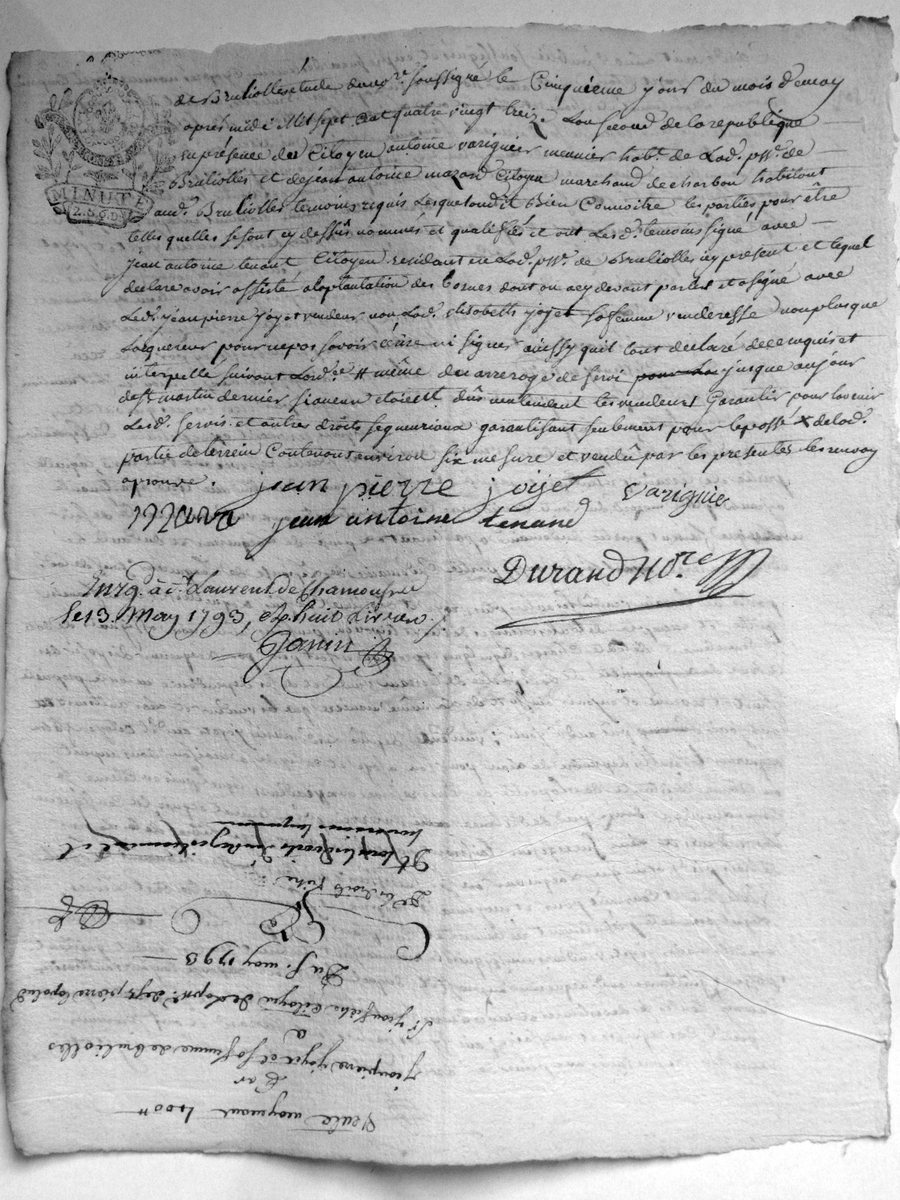 MINUTE
de Brulliolles etude du no.re soussigné le Cinquieme jour du mois de may
apres midi Mil sept Cent quatre vingt treize Lan second de la republique
en presence du Citoyen antoine varignier meunier hab.t de Lad. p.sse de
Brulliolles et de jean antoine mazard Citoyen marchand de charbon habitant
aud. Brulliolles temoins requis Lesquels ont dit Bien Connoitre les parties pour être
telles quelles se sont cy dessus nommés et qualifiés et ont Lesd. temoins signé avec
jean antoine tenant Citoyen residant en Lad. p.sse de Brulliolles icy present et lequel
declare avoir assisté a la plantation des bornes dont on a cy devant parlés et a signé avec
Led. jean pierre joyet vendeur non Lad. elisabeth joyet sa femme venderesse non plus que
Lacquereur pour ne pas savoir écrire ni signer ainssy quil l'ont declaré de ce enquis et
interpellé suivant Lord.ce # même du arrerage de servi pour La jusque aujour
de st martin dernier si aucun etoient dûs nentendent les vendeurs garantir pour lavenir
Lesd. servis et autres droits seigneuriaux garantissant seulement pour le passé de lad.
partie de terrein Contenant environ six mesure et vendû par les presentes le renvoy
aprouvé.
jean pierre joyet varignier
mazard jean antoine tenand
Durand No.re
Enrg. a st Laurent de Chamousset
le 13. May 1793, et huit livres
Janin
Vente moyenant 400 #
Par
jean pierre joyet et sa femme de brulliolles
a
Du 5. may 1793